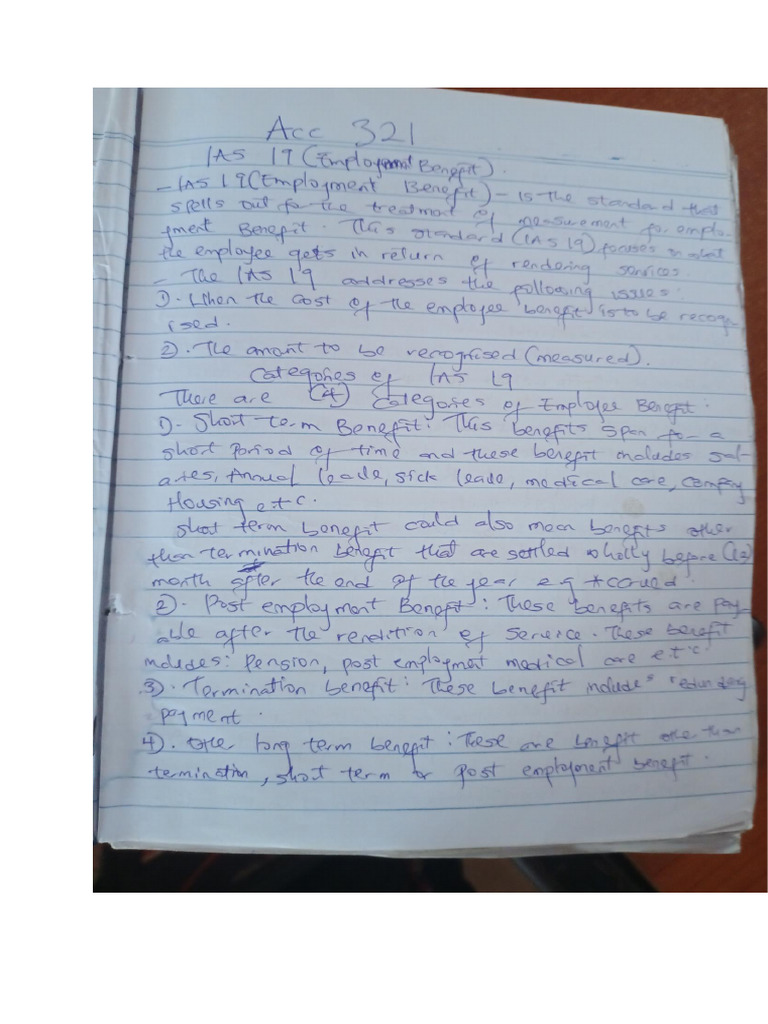 Acc 321
IAS 19 (Employment Benefit).
- IAS 19 (Employment Benefit) - is the standard that
spells out for the treatment of measurement for emplo-
yment Benefit. This standard (IAS 19) focuses on what
the employee gets in return of rendering services.
- The IAS 19 addresses the following issues.
1). When the cost of the employee benefit is to be recogn
ised.
2). The amont to be recognised (measured).
Categories of IAS 19
There are (4) Categories of Employee Benefit.
1). Short term Benefit: This benefits span for a
short Period of time and these benefit includes sal-
aries, Annual leave, sick leave, medical care, company
Housing etc.
Short term benefit could also mean benefits other
than termination benefit that are settled wholly before (12)
month after the end of the year e.g Accrued.
2). Post employment Benefit: These benefits are pay-
able after the rendition of Service. These benefit
includes: Pension, post employment medical care e.t.c
3). Termination benefit: These benefit includes redundancy
payment.
4). Other long term benefit: These are benefit other than
termination, short term or Post employment benefit.